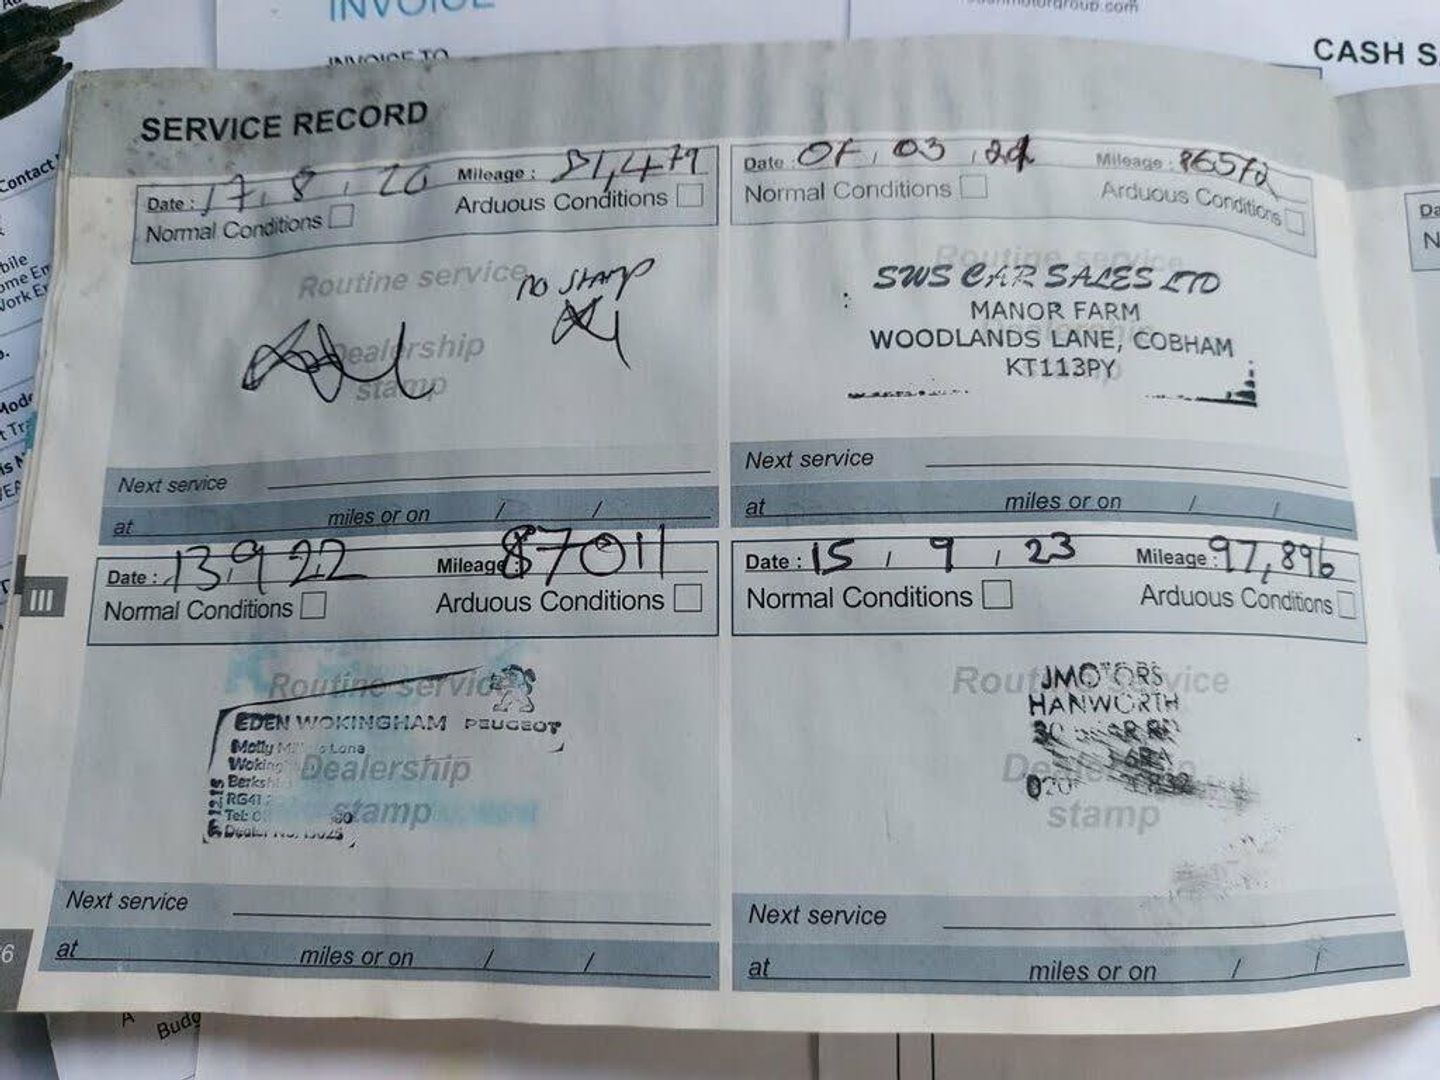 INVOICE
INVOICE TO
CASH S
Contact
SERVICE RECORD
Date : 17, 8, 20 Mileage : 81,479
Normal Conditions Arduous Conditions
Routine service
no stamp
Dealership
stamp
Next service
at miles or on / /
Date : 07, 03, 22 Mileage : 86572
Normal Conditions Arduous Conditions
Routine service
SWS CAR SALES LTD
MANOR FARM
WOODLANDS LANE, COBHAM
KT113PY
Next service
at miles or on / /
III
Date : 13, 9 22 Mileage 87011
Normal Conditions Arduous Conditions
Routine service
EDEN WOKINGHAM PEUGEOT
Molly
Woking
Berksh
RG41
Tel: 0 60
Dealership
stamp
Next service
at miles or on / /
Date : 15 / 9 / 23 Mileage : 97,896
Normal Conditions Arduous Conditions
Routine service
JMOTORS
HANWORTH
020
stamp
Next service
at miles or on / /
6
A
Budg